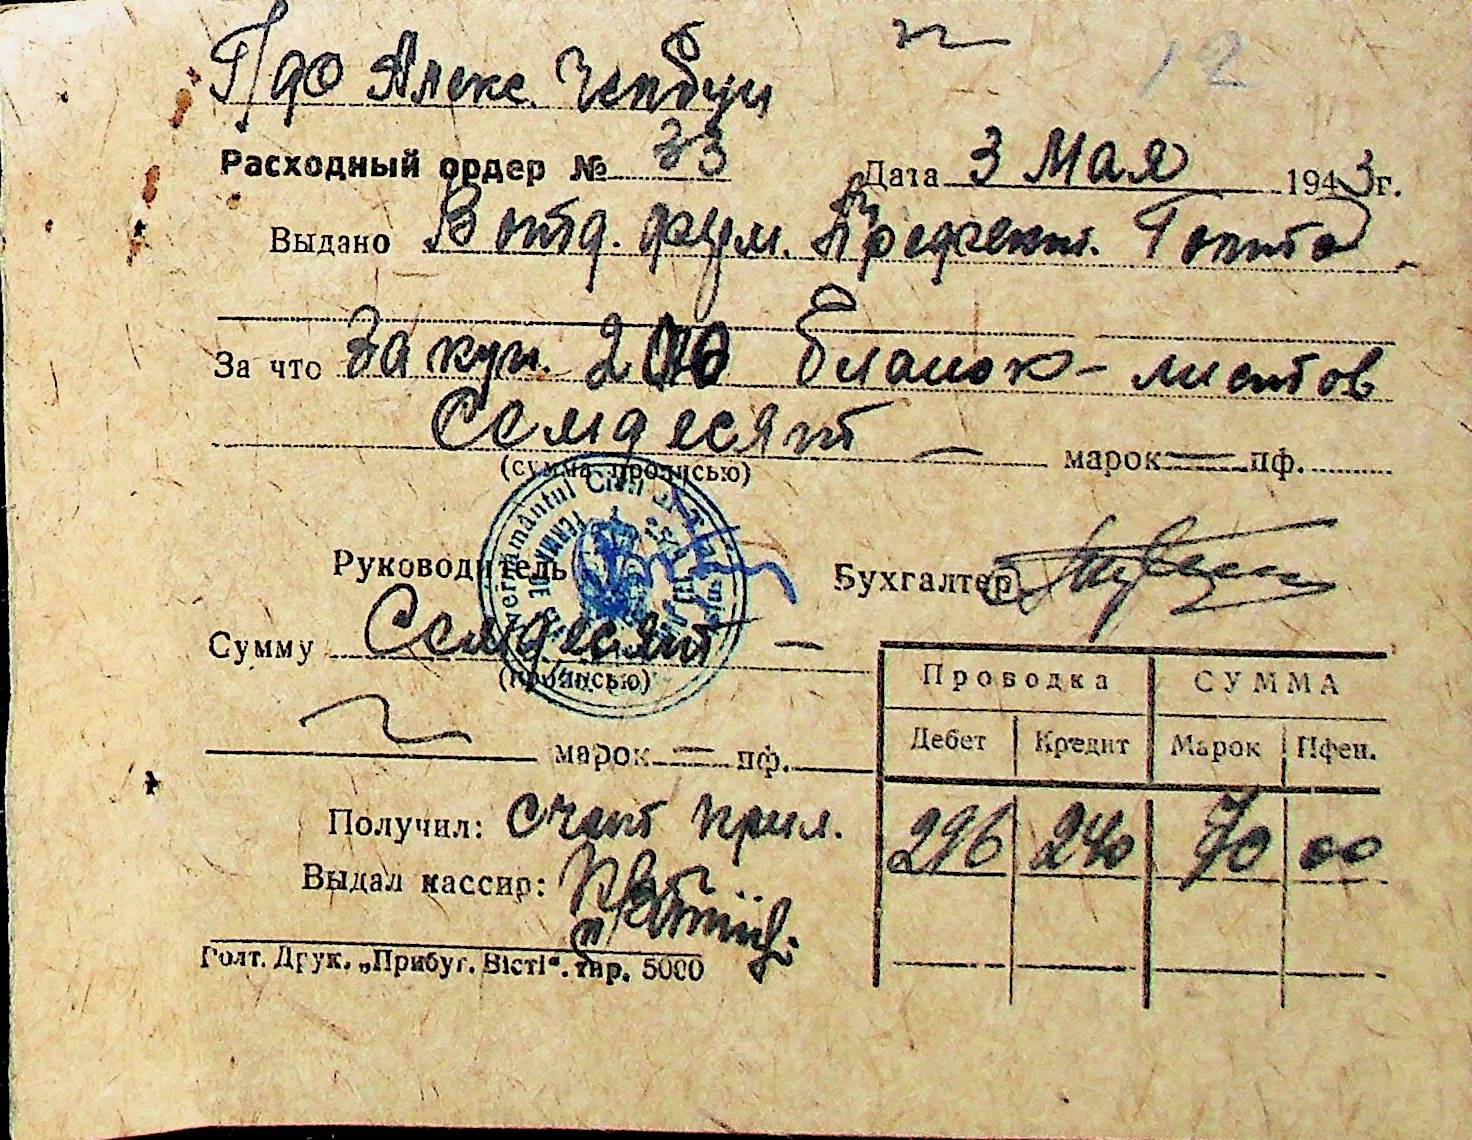 12
Расходный ордер № 33 Дата 3 Мая 1943г.
Выдано В отд. фум. Префект. Голта
За что За куп. 200 бланок-листов
Семдесят — марок = пф.
(сумма прописью)
Руководитель Бухгалтер
Сумму Семдесят —
(прописью)
марок = пф.
Проводка СУММА
Дебет Кредит Марок Пфен.
296 240 70 00
Получил: счет прил.
Выдал кассир:
Голт. Друк. „Прибуг. Вісті“. тир. 5000